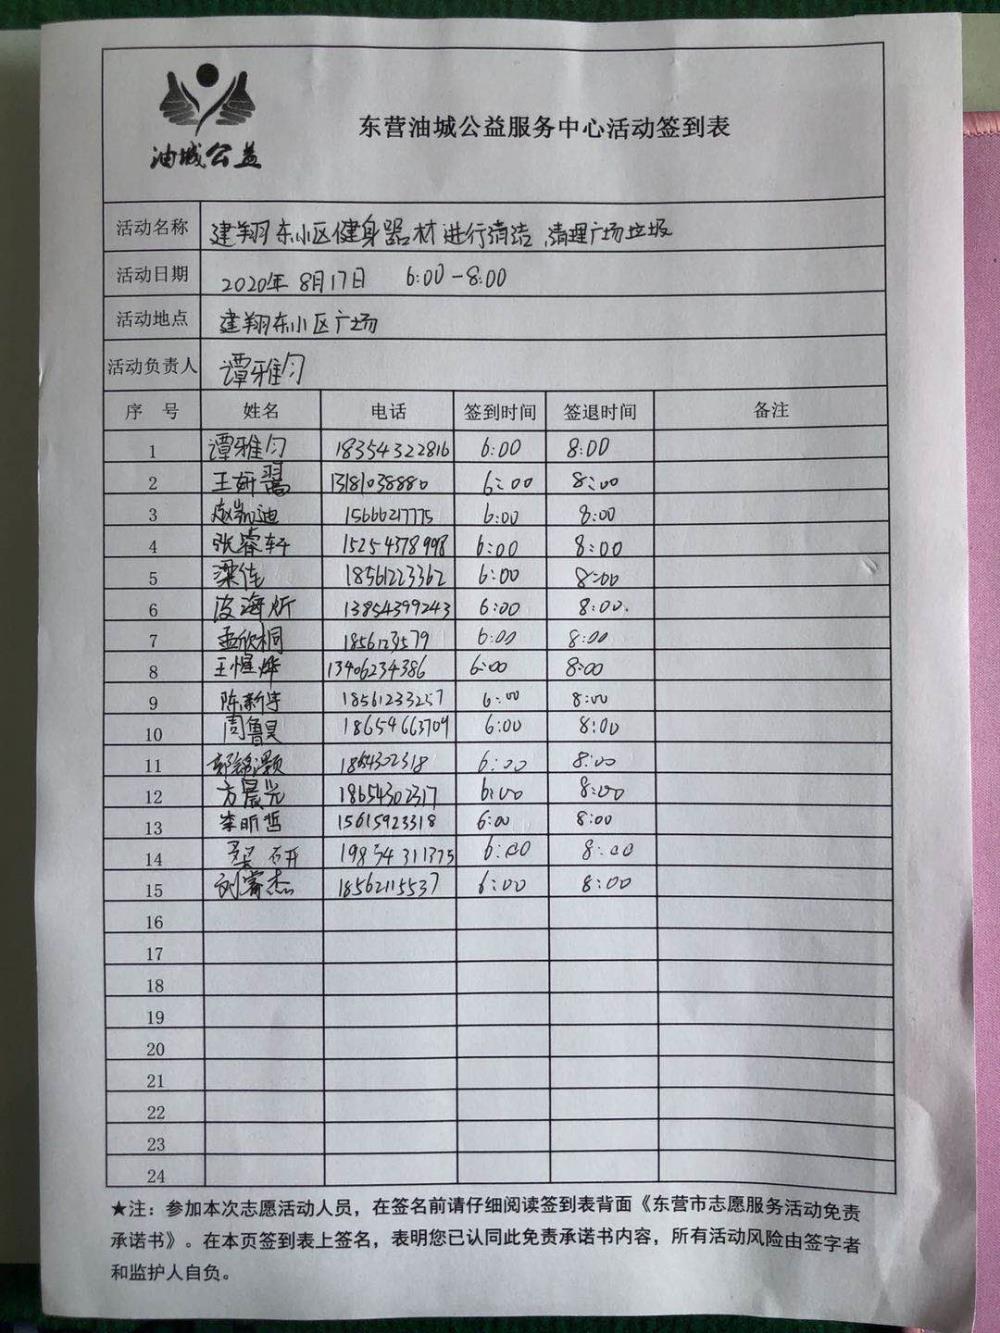 油城公益
东营油城公益服务中心活动签到表
活动名称 建翔东小区健身器材进行清洁,清理广场垃圾
活动日期 2020年8月17日 6:00-8:00
活动地点 建翔东小区广场
活动负责人 谭雅匀
序 号 姓名 电话 签到时间 签退时间 备注
1 谭雅匀 18354322816 6:00 8:00
2 王妍翯 13181038880 6:00 8:00
3 赵凯迪 15666217775 6:00 8:00
4 张睿轩 15254378998 6:00 8:00
5 梁佳 18561223362 6:00 8:00
6 海炘 13854399243 6:00 8:00.
7 孟欣桐 1856123579 6:00 8:00
8 王煜烨 13406234386 6:00 8:00
9 陈新宇 18561233257 6:00 8:00
10 周鲁昊 18654663709 6:00 8:00
11 1864302318 6:00 8:00
12 方晨光 18654302317 6:00 8:00
13 李昕哲 15615923318 6:00 8:00
14 研 19854311375 6:00 8:00
15 刘睿杰 18562115537 6:00 8:00
16
17
18
19
20
21
22
23
24
★注：参加本次志愿活动人员，在签名前请仔细阅读签到表背面《东营市志愿服务活动免责
承诺书》。在本页签到表上签名，表明您已认同此免责承诺书内容，所有活动风险由签字者
和监护人自负。